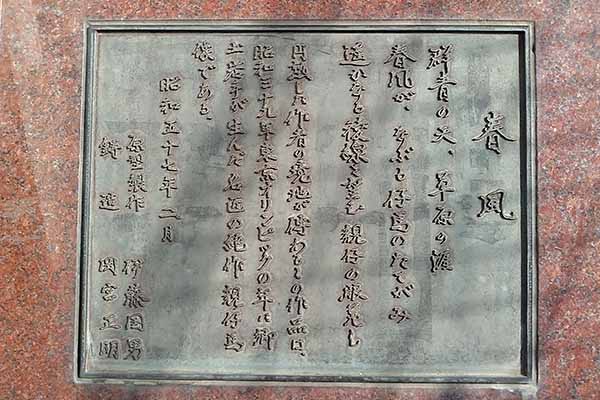 春風
群青の天、草原の涯
春風が、なぶる仔馬のたてがみ
遥かなる稜線を望む親仔の眼光も
円熟した作者の境地が偲ばれるこの作品は、
昭和三十九年東京オリンピックの年に郷
土岩手が生んだ名匠の絶作 親仔馬
像である。
昭和五十七年二月
原型製作 伊藤國男
鋳造 岡宮正明